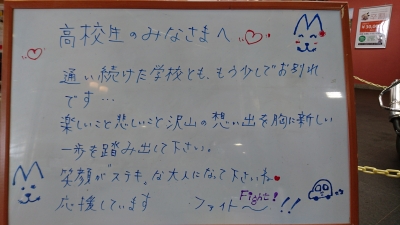 高校生のみなさまへ
通い続けた学校とも、もう少しでお別れ
です…
楽しいこと悲しいこと沢山の想い出を胸に新しい
一歩を踏み出して下さい。
笑顔が"ステキ"な大人になって下さいね
応援しています ファイト〜!!
Fight!